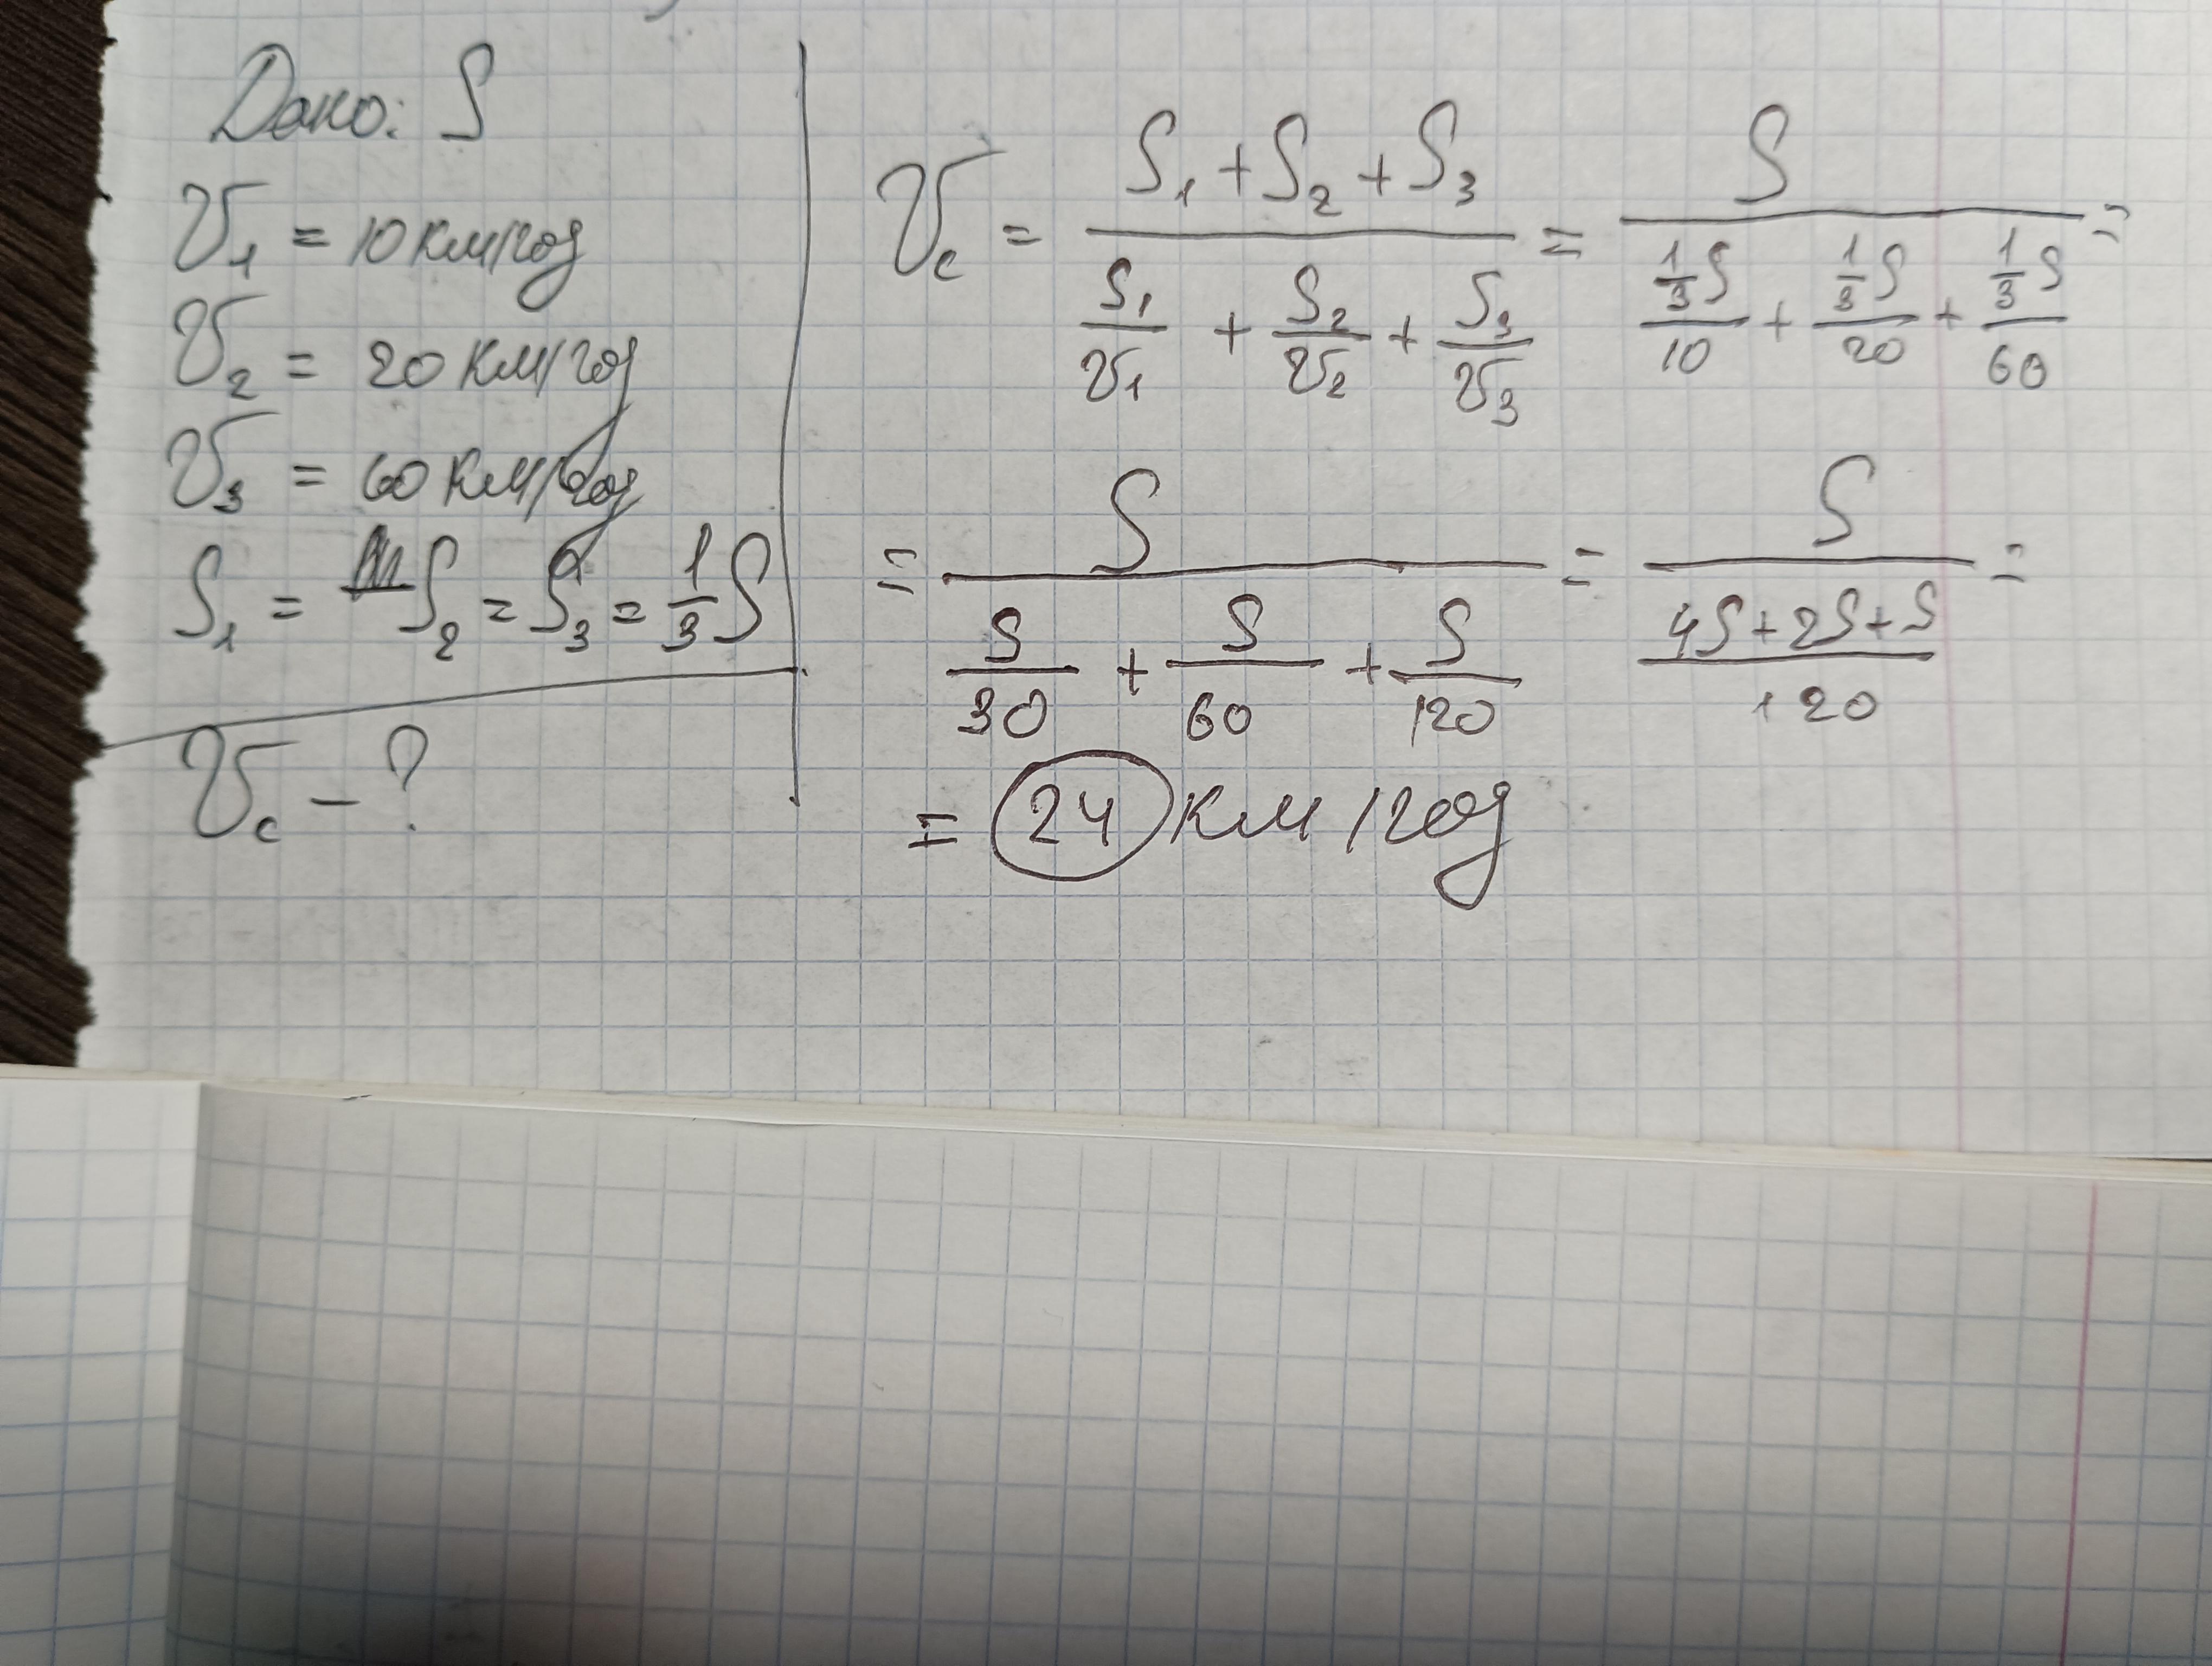 Дано: S
V₁ = 10 км/год
V₂ = 20 км/год
V₃ = 60 км/год
S₁ = S₂ = S₃ = 1/3 S
Vc – ?
Vc = (S₁ + S₂ + S₃) / (S₁/V₁ + S₂/V₂ + S₃/V₃) = S / ((1/3 S)/10 + (1/3 S)/20 + (1/3 S)/60) =
= S / (S/30 + S/60 + S/120) = S / ((4S + 2S + S)/120) =
= 24 км/год